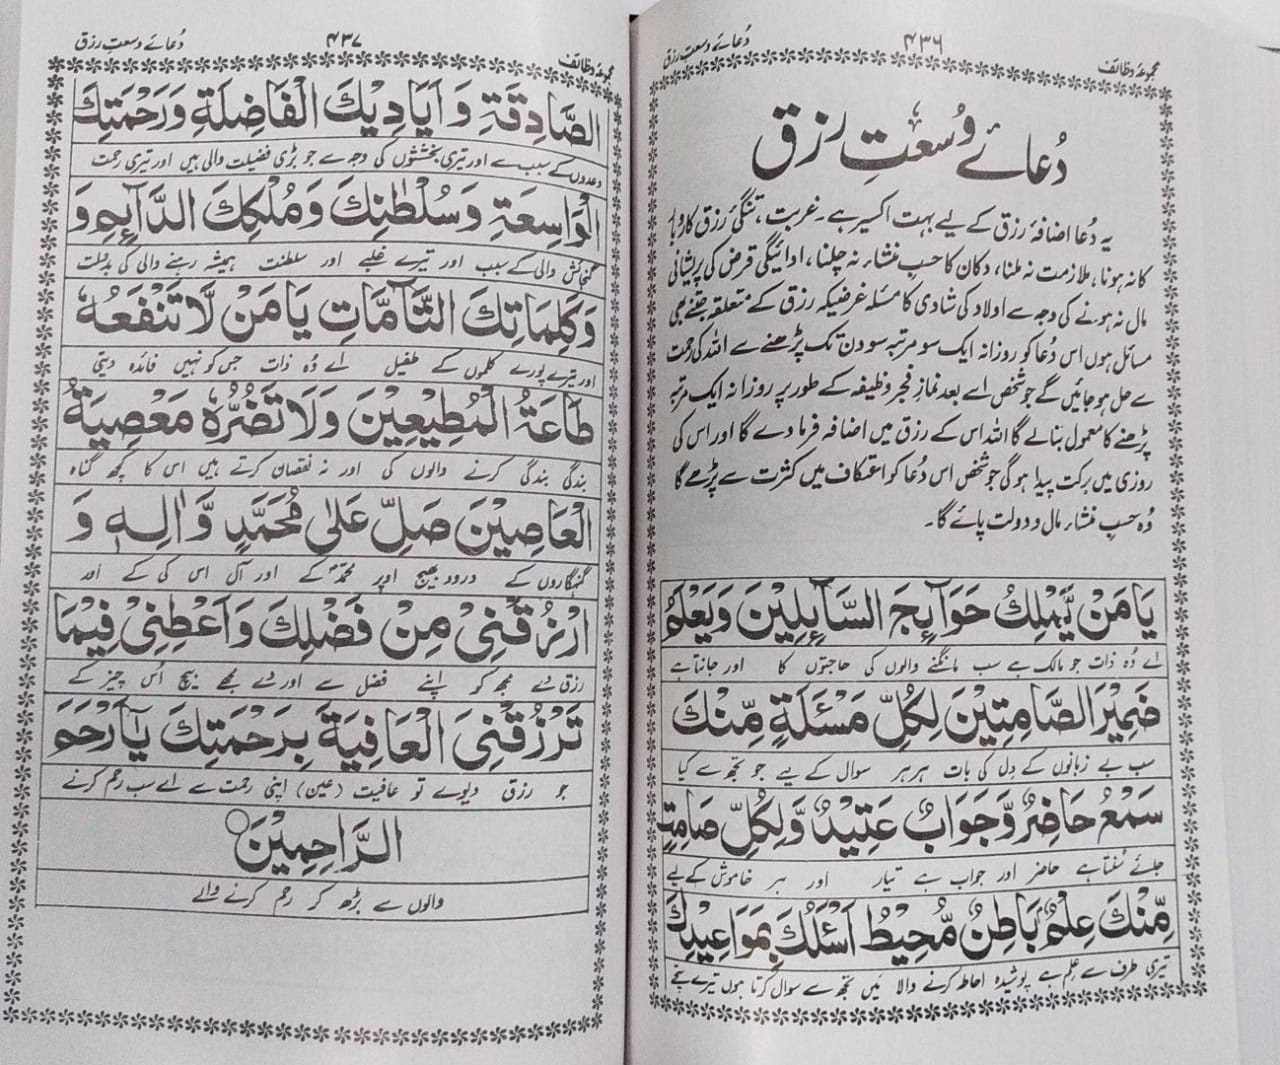 مجموعۂ وظائف
۴۳۶
دُعائے وسعتِ رزق
دُعائے وُسعتِ رزق
یہ دُعا اضافۂ رزق کے لیے بہت اکسیر ہے۔ غربت، تنگئ رزق کاروبار
کا نہ ہونا، ملازمت نہ ملنا، دکان کا حسبِ منشاء نہ چلنا، ادائیگی قرض کی پریشانی
مال نہ ہونے کی وجہ سے اولاد کی شادی کا مسئلہ غرضیکہ رزق کے متعلقہ جتنے بھی
مسائل ہوں اس دُعا کو روزانہ ایک سو مرتبہ سو دن تک پڑھنے سے اللہ کی رحمت
سے حل ہو جائیں گے جو شخص اسے بعد نمازِ فجر وظیفہ کے طور پر روزانہ ایک مرتبہ
پڑھنے کا معمول بنا لے گا اللہ اس کے رزق میں اضافہ فرما دے گا اور اس کی
روزی میں برکت پیدا ہوگی جو شخص اس دُعا کو اعتکاف میں کثرت سے پڑھے گا
وُہ حسبِ منشار مال و دولت پائے گا۔
يَا مَنْ يَّمْلِكُ حَوَآئِجَ السَّآئِلِيْنَ وَيَعْلَمُ
اے وُہ ذات جو مالک ہے سب مانگنے والوں کی حاجتوں کا اور جانتا ہے
ضَمِيْرَ الصَّامِتِيْنَ لِكُلِّ مَسْئَلَةٍ مِّنْكَ
سب بے زبانوں کے دِل کی بات ہر ہر سوال کے لیے جو تجھ سے کیا
سَمْعٌ حَاضِرٌ وَّجَوَابٌ عَتِيْدٌ وَّلِكُلِّ صَامِتٍ
جائے سُنتا ہے حاضر اور جواب ہے تیار اور ہر خاموش کے لیے
مِّنْكَ عِلْمٌ بَاطِنٌ مُّحِيْطٌ اَسْئَلُكَ بِمَوَاعِيْدِكَ
تیری طرف سے عِلم ہے پوشیدہ احاطہ کرنے والا میں تجھ سے سوال کرتا ہوں تیرے سچے
مجموعۂ وظائف
۴۳۷
دُعائے وسعتِ رزق
الصَّادِقَةِ وَ اَيَادِيْكَ الْفَاضِلَةِ وَرَحْمَتِكَ
وعدوں کے سبب سے اور تیری بخششوں کی وجہ سے جو بڑی فضیلت والی ہیں اور تیری رحمت
الْوَاسِعَةِ وَسُلْطٰنِكَ وَمُلْكِكَ الدَّآئِمِ وَ
گنجائش والی کے سبب اور تیرے غلبے اور سلطنت ہمیشہ رہنے والی کی بدولت
وَكَلِمَاتِكَ التَّآمَّاتِ يَا مَنْ لَّا تَنْفَعُهٗ
اور تیرے پورے کلموں کے طفیل اے وُہ ذات جس کو نہیں فائدہ دیتی
طَاعَةُ الْمُطِيْعِيْنَ وَلَا تَضُرُّهٗ مَعْصِيَةُ
بندگی بندگی کرنے والوں کی اور نہ نقصان کرتے ہیں اس کا کچھ گناہ
الْعَاصِيْنَ صَلِّ عَلٰى مُحَمَّدٍ وَّاٰلِهٖ وَ
گنہگاروں کے درود بھیج اوپر محمدؐ کے اور آل اس کی کے اور
ارْزُقْنِيْ مِنْ فَضْلِكَ وَاَعْطِنِيْ فِيْمَا
رزق دے مجھ کو اپنے فضل سے اور دے مجھے بیچ اُس چیز کے
تَرْزُقْنِيَ الْعَافِيَةَ بِرَحْمَتِكَ يَآ اَرْحَمَ
جو رزق دیوے تو عافیت (عین) اپنی رحمت سے اے سب رحم کرنے
الرَّاحِمِيْنَ
والوں سے بڑھ کر رحم کرنے والے